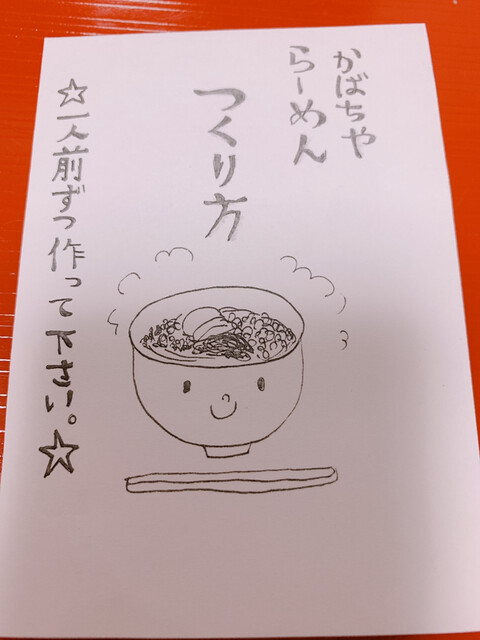 かばちや
らーめん
つくり方
☆一人前ずつ作って下さい。☆